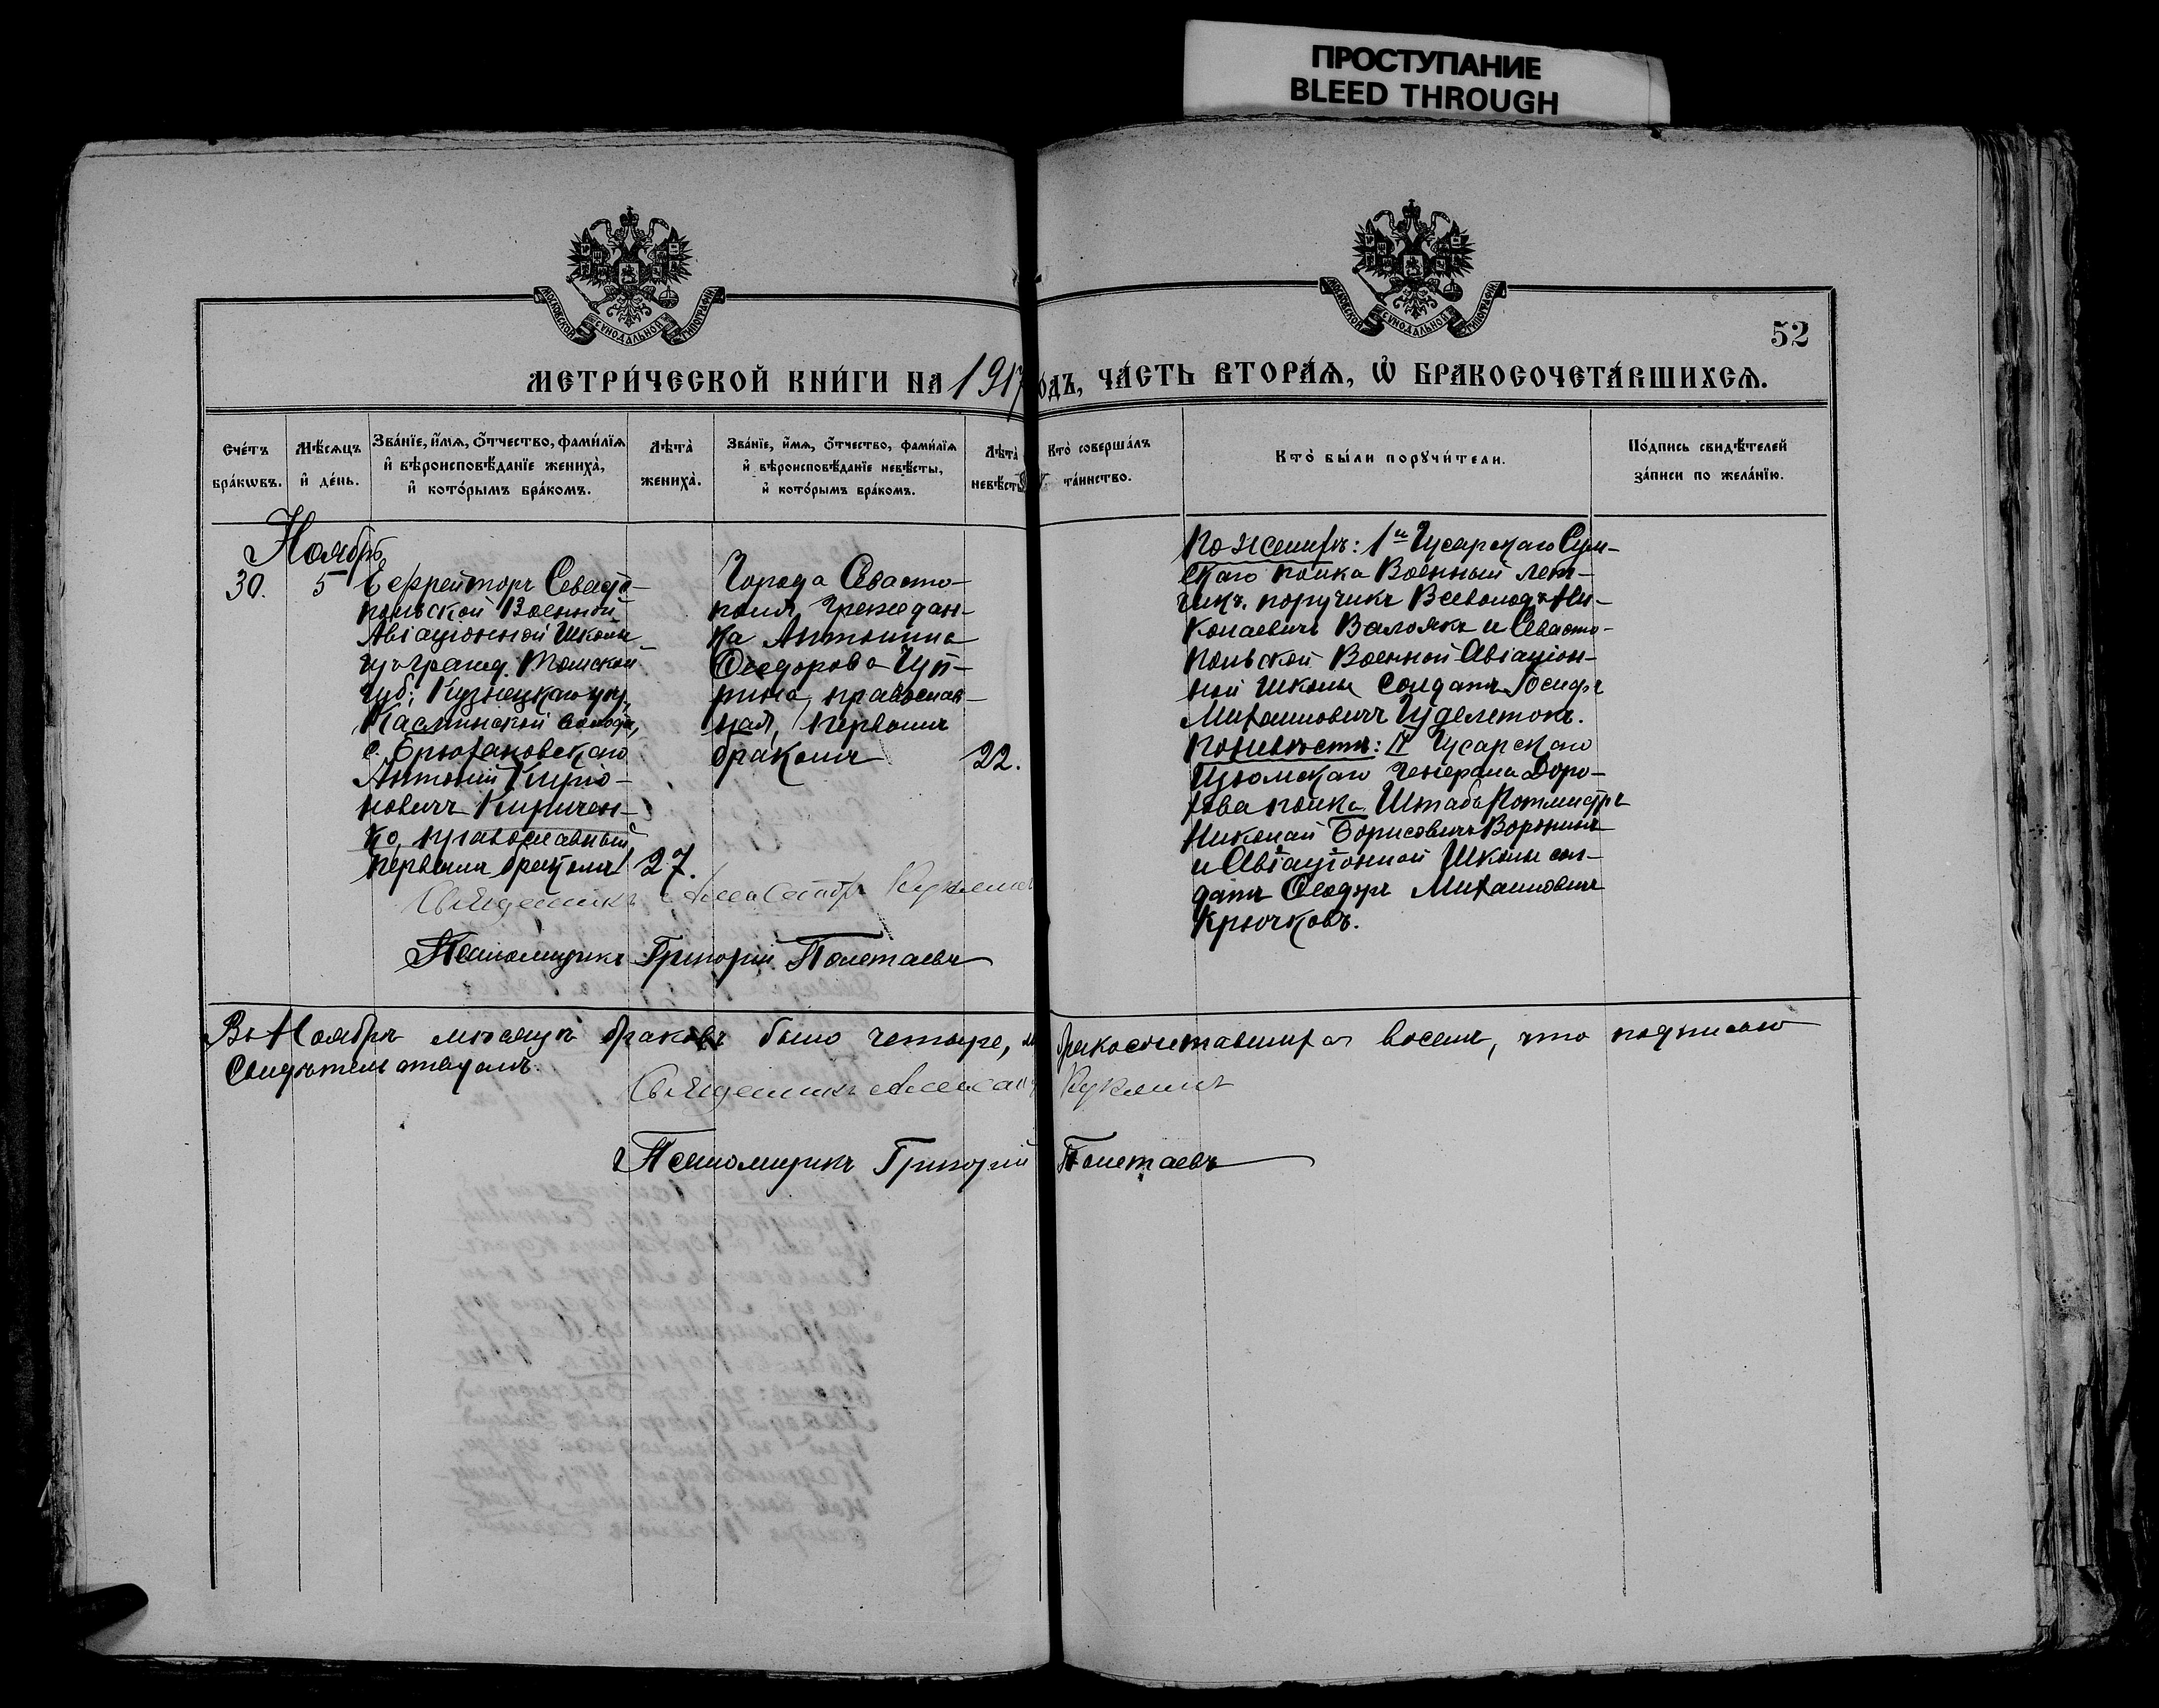 ПРОСТУПАНИЕ
BLEED THROUGH
МОСКОВСКОЙ СѴНОДАЛЬНОЙ ТИПОГРАФІИ
МОСКОВСКОЙ СѴНОДАЛЬНОЙ ТИПОГРАФІИ
52
МЕТРИ́ЧЕСКОЙ КНИ́ГИ НА 1917 ОДЪ, ЧА́СТЬ ВТОРА́Ѧ, Ѡ҆ БРАКОСОЧЕТА́ВШИХСѦ.
Сче́тъ бра́кѡвъ.
Мѣ́сѧцъ и҆ де́нь.
Зва́нїе, и҆́мѧ, ѻ҆́тчество, фами́лїѧ и҆ вѣроисповѣ́данїе жениха̀, и҆ кото́рымъ бра́комъ.
Лѣта̀ жениха̀.
Зва́нїе, и҆́мѧ, ѻ҆́тчество, фами́лїѧ и҆ вѣроисповѣ́данїе невѣ́сты, и҆ кото́рымъ бра́комъ.
Лѣта̀ невѣ́сты
Кто̀ соверша́лъ та́инство.
Кто̀ бы́ли порꙋчи́тели.
По́дпись свидѣ́телей за́писи по жела́нїю.
Ноябрь
30.
5
Ефрейторъ Севасто-
польской Военной
Авіаціонной Школы
гражд. Томской
губ., Кузнецкаго уѣз,
Касминской волости,
с. Брюхановскаго
Антоній
новичъ Киричен-
ко, православный,
первымъ бракомъ
27.
Города Севасто-
поля, граждан-
ка Антонина
Ѳеодорова Чуп-
рина, православ-
ная, первымъ
бракомъ
22.
По женихѣ: 1го Гусарскаго Сум-
скаго полка Военный лет-
чикъ поручикъ Всеволодъ Ни-
колаевичъ и Севасто-
польской Военной Авіаціон-
ной Школы Солдатъ Іосифъ
Михаиловичъ
По невѣстѣ: Гусарскаго
Изюмскаго Генерала Доро-
хова полка Штабъ Ротмистръ
Николай Борисовичъ Воронинъ
и Авіаціонной Школы сол-
датъ Ѳеодоръ Михаиловичъ
Крючковъ.
Священникъ Александръ
Псаломщикъ Григорій Полетаевъ
Въ Ноябрѣ мѣсяцѣ браковъ было четыре, а бракосочетавшихся восемь, что подписью
Свидѣтельствуемъ.
Священникъ Алекса
Псаломщикъ Григорій Полетаевъ